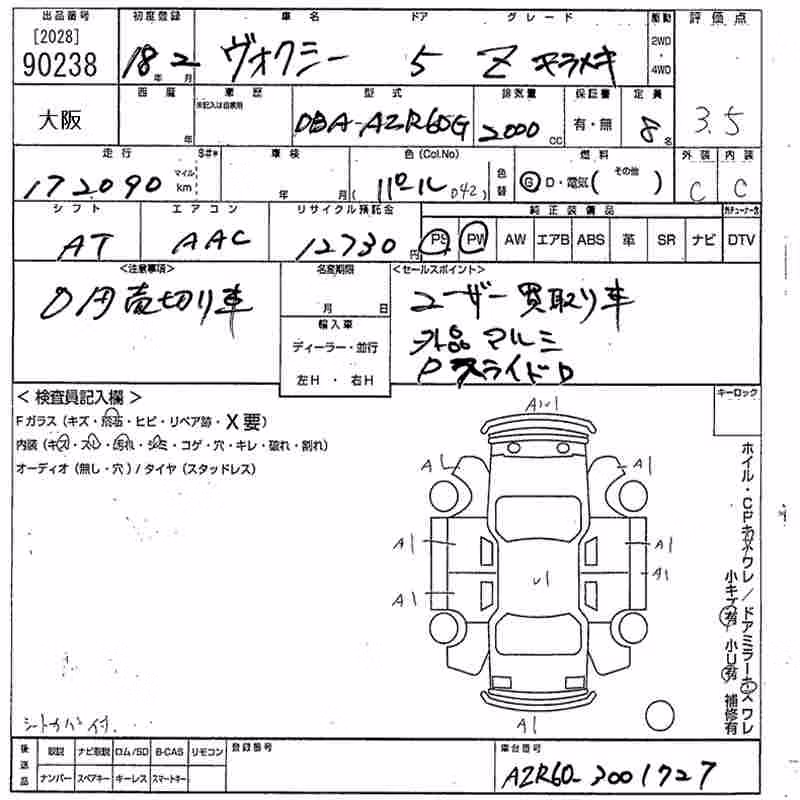 出品番号 初度登録 車名 ドア グレード 駆動 評価点
[2028]
90238 18年 2月 ヴォクシー 5 Z キラメキ 2WD・4WD
大阪 西暦 年 車歴 ※記入は自家用 型式 排気量 保証書 定員
DBA-AZR60G 2000cc 有・無 8名 3.5
走行 S#* 車検 色(Col.No) 燃料 外装 内装
172090 マイル km 年 月 ( パール 042 ) 色替 Ⓖ D・電気( その他 ) C C
シフト エアコン リサイクル預託金 純正装備品
AT AAC 12730円 PS PW AW エアB ABS 革 SR ナビ DTV
<注意事項> 名変期限 <セールスポイント>
0円売切り車 月 日 ユーザー買取り車
輸入車 外品アルミ
ディーラー・並行 PスライドD
左H ・ 右H
< 検査員記入欄 > キーロック
Fガラス(キズ・飛石・ヒビ・リペア跡・X要)
内装(キズ・スレ・汚れ・シミ・コゲ・穴・キレ・破れ・割れ)
オーディオ(無し・穴)/タイヤ(スタッドレス)
A1 A1
A1 A1
A1 A1
U1
A1
A1
ホイル・CPキズワレ/ドアミラーキズワレ
小キズ有 小U有 補修有
シートカバー付.
後送品 取説 ナビ取説 ロム/SD B-CAS リモコン 登録番号 車台番号
ナンバー スペアキー キーレス スマートキー AZR60-3001727